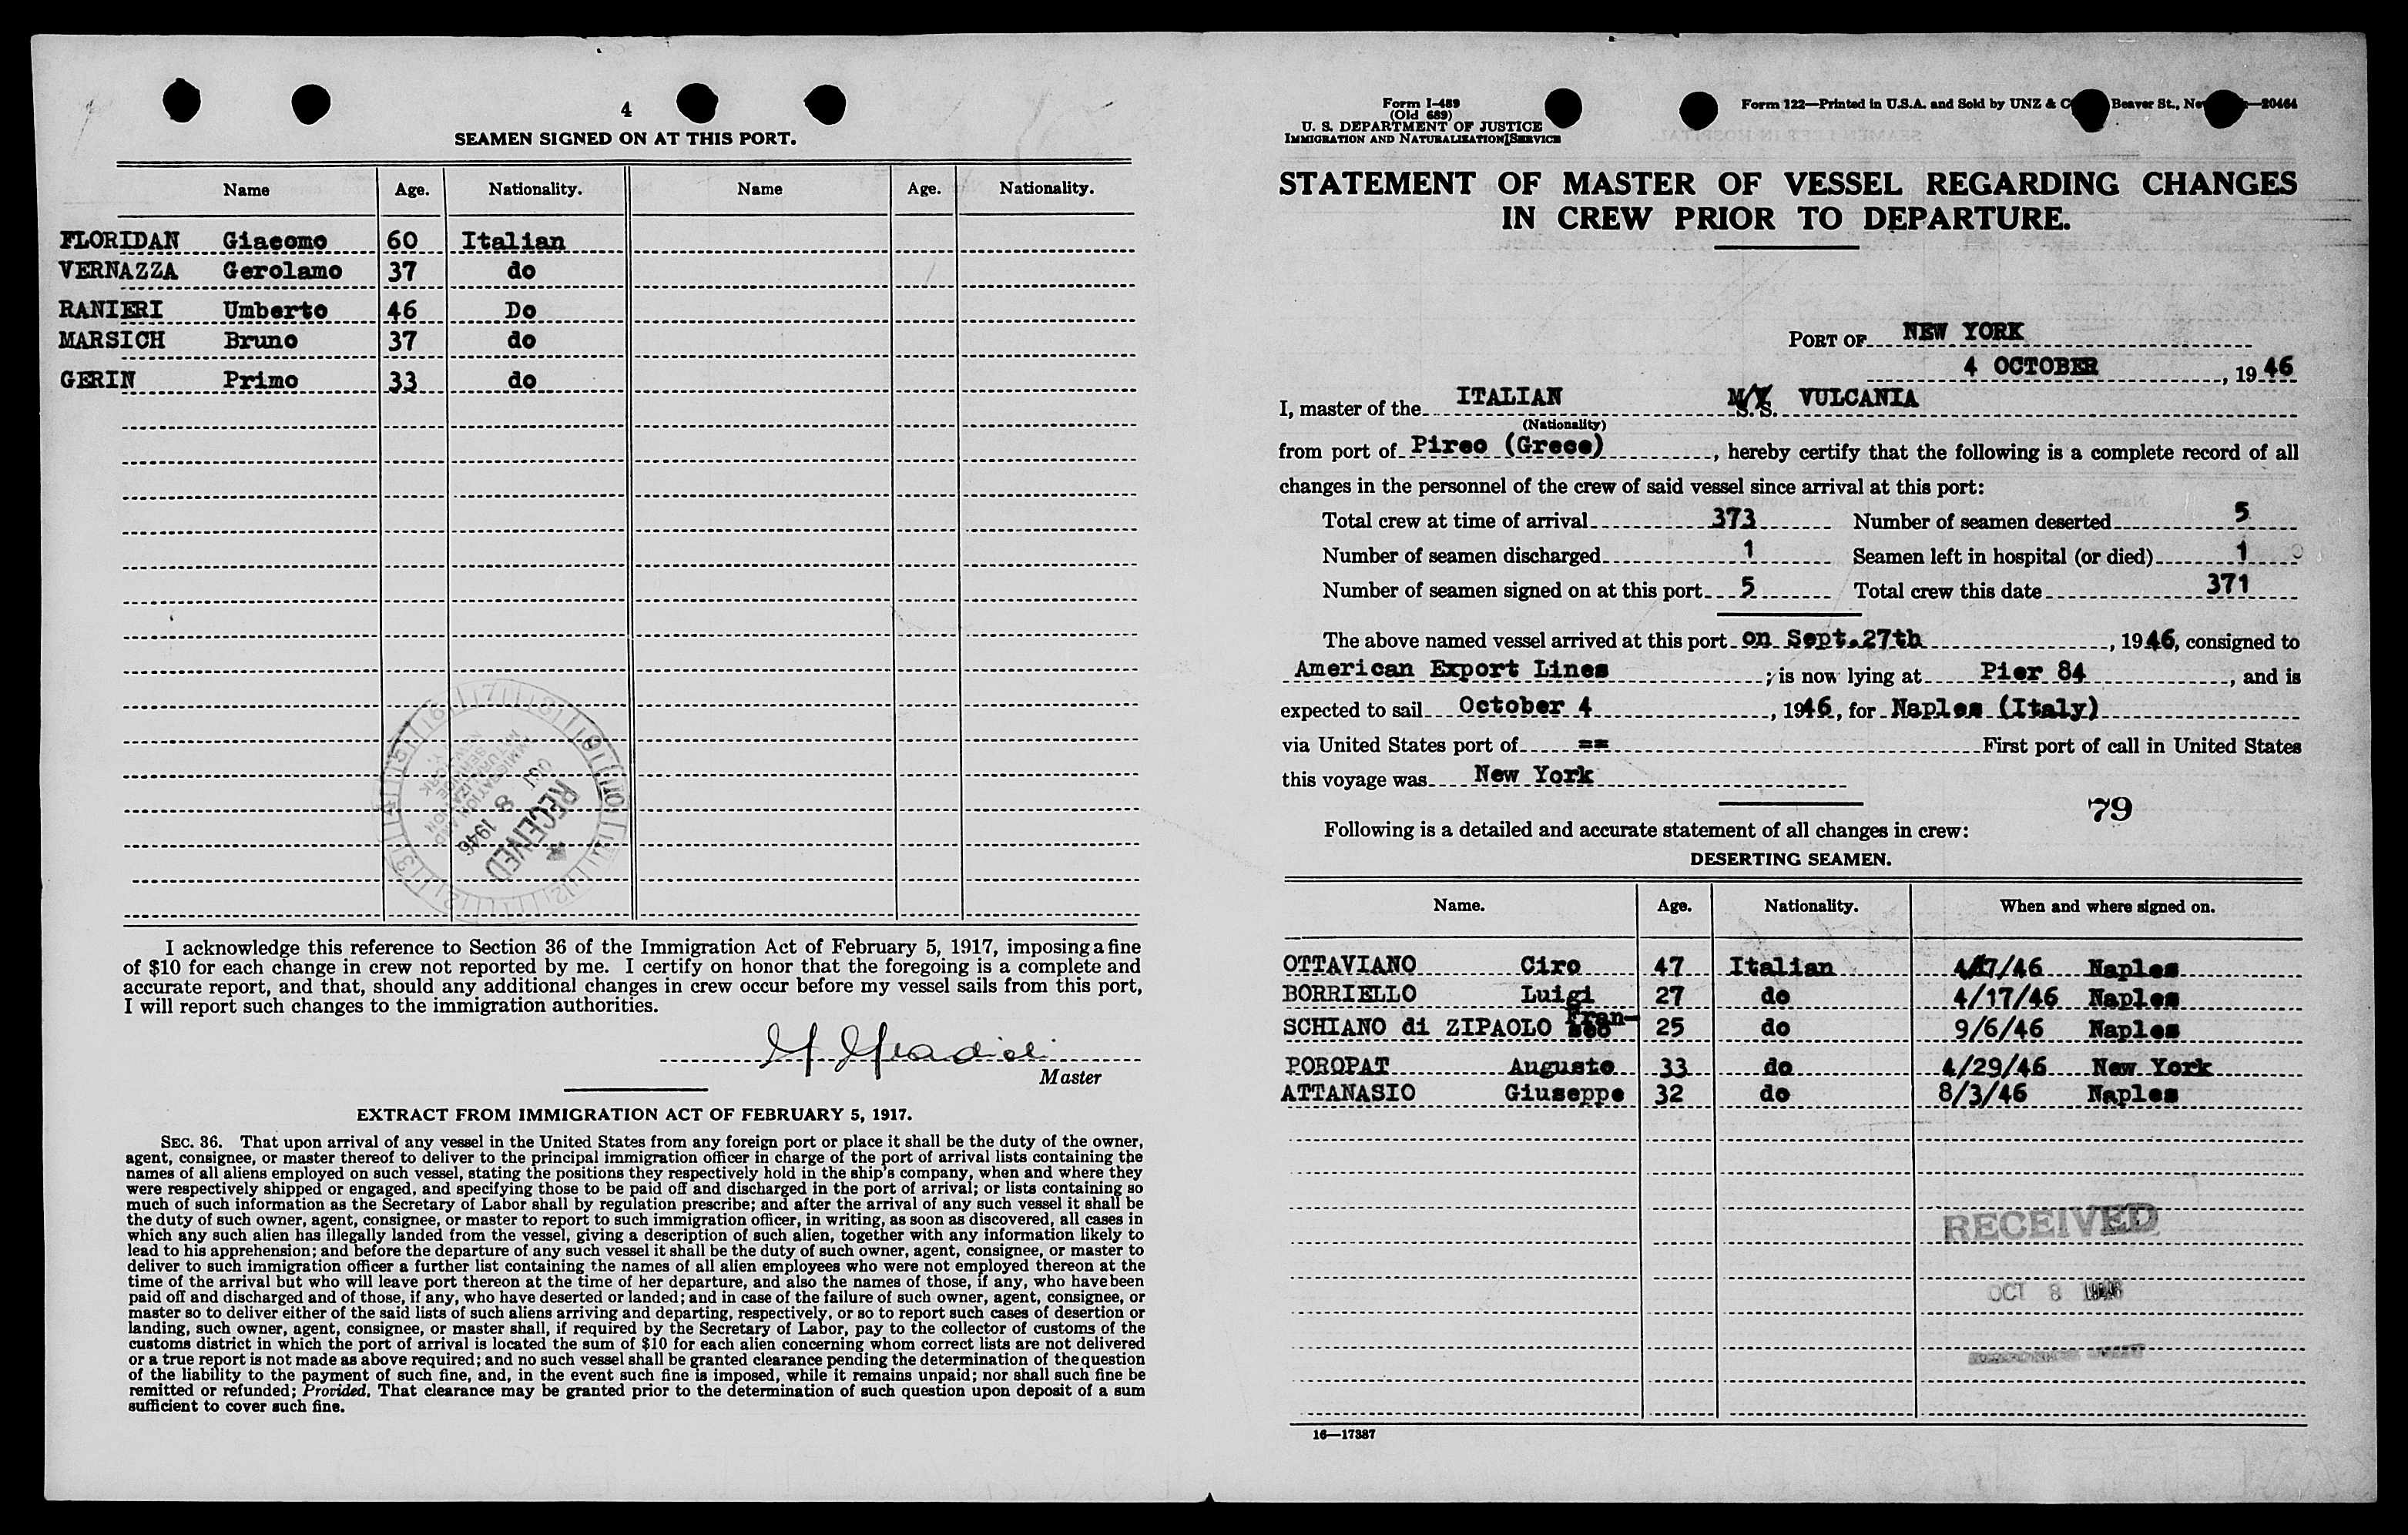 4
SEAMEN SIGNED ON AT THIS PORT.
Name Age. Nationality. Name Age. Nationality.
FLORIDAN Giacomo 60 Italian
VERNAZZA Gerolamo 37 do
RANIERI Umberto 46 Do
MARSICH Bruno 37 do
GERIN Primo 33 do
RECEIVED
OCT 8 1946
I acknowledge this reference to Section 36 of the Immigration Act of February 5, 1917, imposing a fine
of $10 for each change in crew not reported by me. I certify on honor that the foregoing is a complete and
accurate report, and that, should any additional changes in crew occur before my vessel sails from this port,
I will report such changes to the immigration authorities.
Master
EXTRACT FROM IMMIGRATION ACT OF FEBRUARY 5, 1917.
SEC. 36. That upon arrival of any vessel in the United States from any foreign port or place it shall be the duty of the owner,
agent, consignee, or master thereof to deliver to the principal immigration officer in charge of the port of arrival lists containing the
names of all aliens employed on such vessel, stating the positions they respectively hold in the ship's company, when and where they
were respectively shipped or engaged, and specifying those to be paid off and discharged in the port of arrival; or lists containing so
much of such information as the Secretary of Labor shall by regulation prescribe; and after the arrival of any such vessel it shall be
the duty of such owner, agent, consignee, or master to report to such immigration officer, in writing, as soon as discovered, all cases in
which any such alien has illegally landed from the vessel, giving a description of such alien, together with any information likely to
lead to his apprehension; and before the departure of any such vessel it shall be the duty of such owner, agent, consignee, or master to
deliver to such immigration officer a further list containing the names of all alien employees who were not employed thereon at the
time of the arrival but who will leave port thereon at the time of her departure, and also the names of those, if any, who have been
paid off and discharged and of those, if any, who have deserted or landed; and in case of the failure of such owner, agent, consignee, or
master so to deliver either of the said lists of such aliens arriving and departing, respectively, or so to report such cases of desertion or
landing, such owner, agent, consignee, or master shall, if required by the Secretary of Labor, pay to the collector of customs of the
customs district in which the port of arrival is located the sum of $10 for each alien concerning whom correct lists are not delivered
or a true report is not made as above required; and no such vessel shall be granted clearance pending the determination of the question
of the liability to the payment of such fine, and, in the event such fine is imposed, while it remains unpaid; nor shall such fine be
remitted or refunded; Provided, That clearance may be granted prior to the determination of such question upon deposit of a sum
sufficient to cover such fine.
Form I-489
(Old 689)
U. S. DEPARTMENT OF JUSTICE
IMMIGRATION AND NATURALIZATION SERVICE
Form 122—Printed in U.S.A. and Sold by UNZ & C Beaver St., Ne —20464
STATEMENT OF MASTER OF VESSEL REGARDING CHANGES
IN CREW PRIOR TO DEPARTURE.
PORT OF NEW YORK
4 OCTOBER, 1946
I, master of the ITALIAN M/V S.S. VULCANIA
(Nationality)
from port of Pireo (Grece), hereby certify that the following is a complete record of all
changes in the personnel of the crew of said vessel since arrival at this port:
Total crew at time of arrival 373 Number of seamen deserted 5
Number of seamen discharged 1 Seamen left in hospital (or died) 1
Number of seamen signed on at this port 5 Total crew this date 371
The above named vessel arrived at this port on Sept.27th, 1946, consigned to
American Export Lines; is now lying at Pier 84, and is
expected to sail October 4, 1946, for Naples (Italy)
via United States port of == First port of call in United States
this voyage was New York
79
Following is a detailed and accurate statement of all changes in crew:
DESERTING SEAMEN.
Name. Age. Nationality. When and where signed on.
OTTAVIANO Ciro 47 Italian 4/17/46 Naples
BORRIELLO Luigi 27 do 4/17/46 Naples
SCHIANO di ZIPAOLO Fran- 25 do 9/6/46 Naples
POROPAT Augusto 33 do 4/29/46 New York
ATTANASIO Giuseppe 32 do 8/3/46 Naples
RECEIVED
OCT 8 1946
16—17387